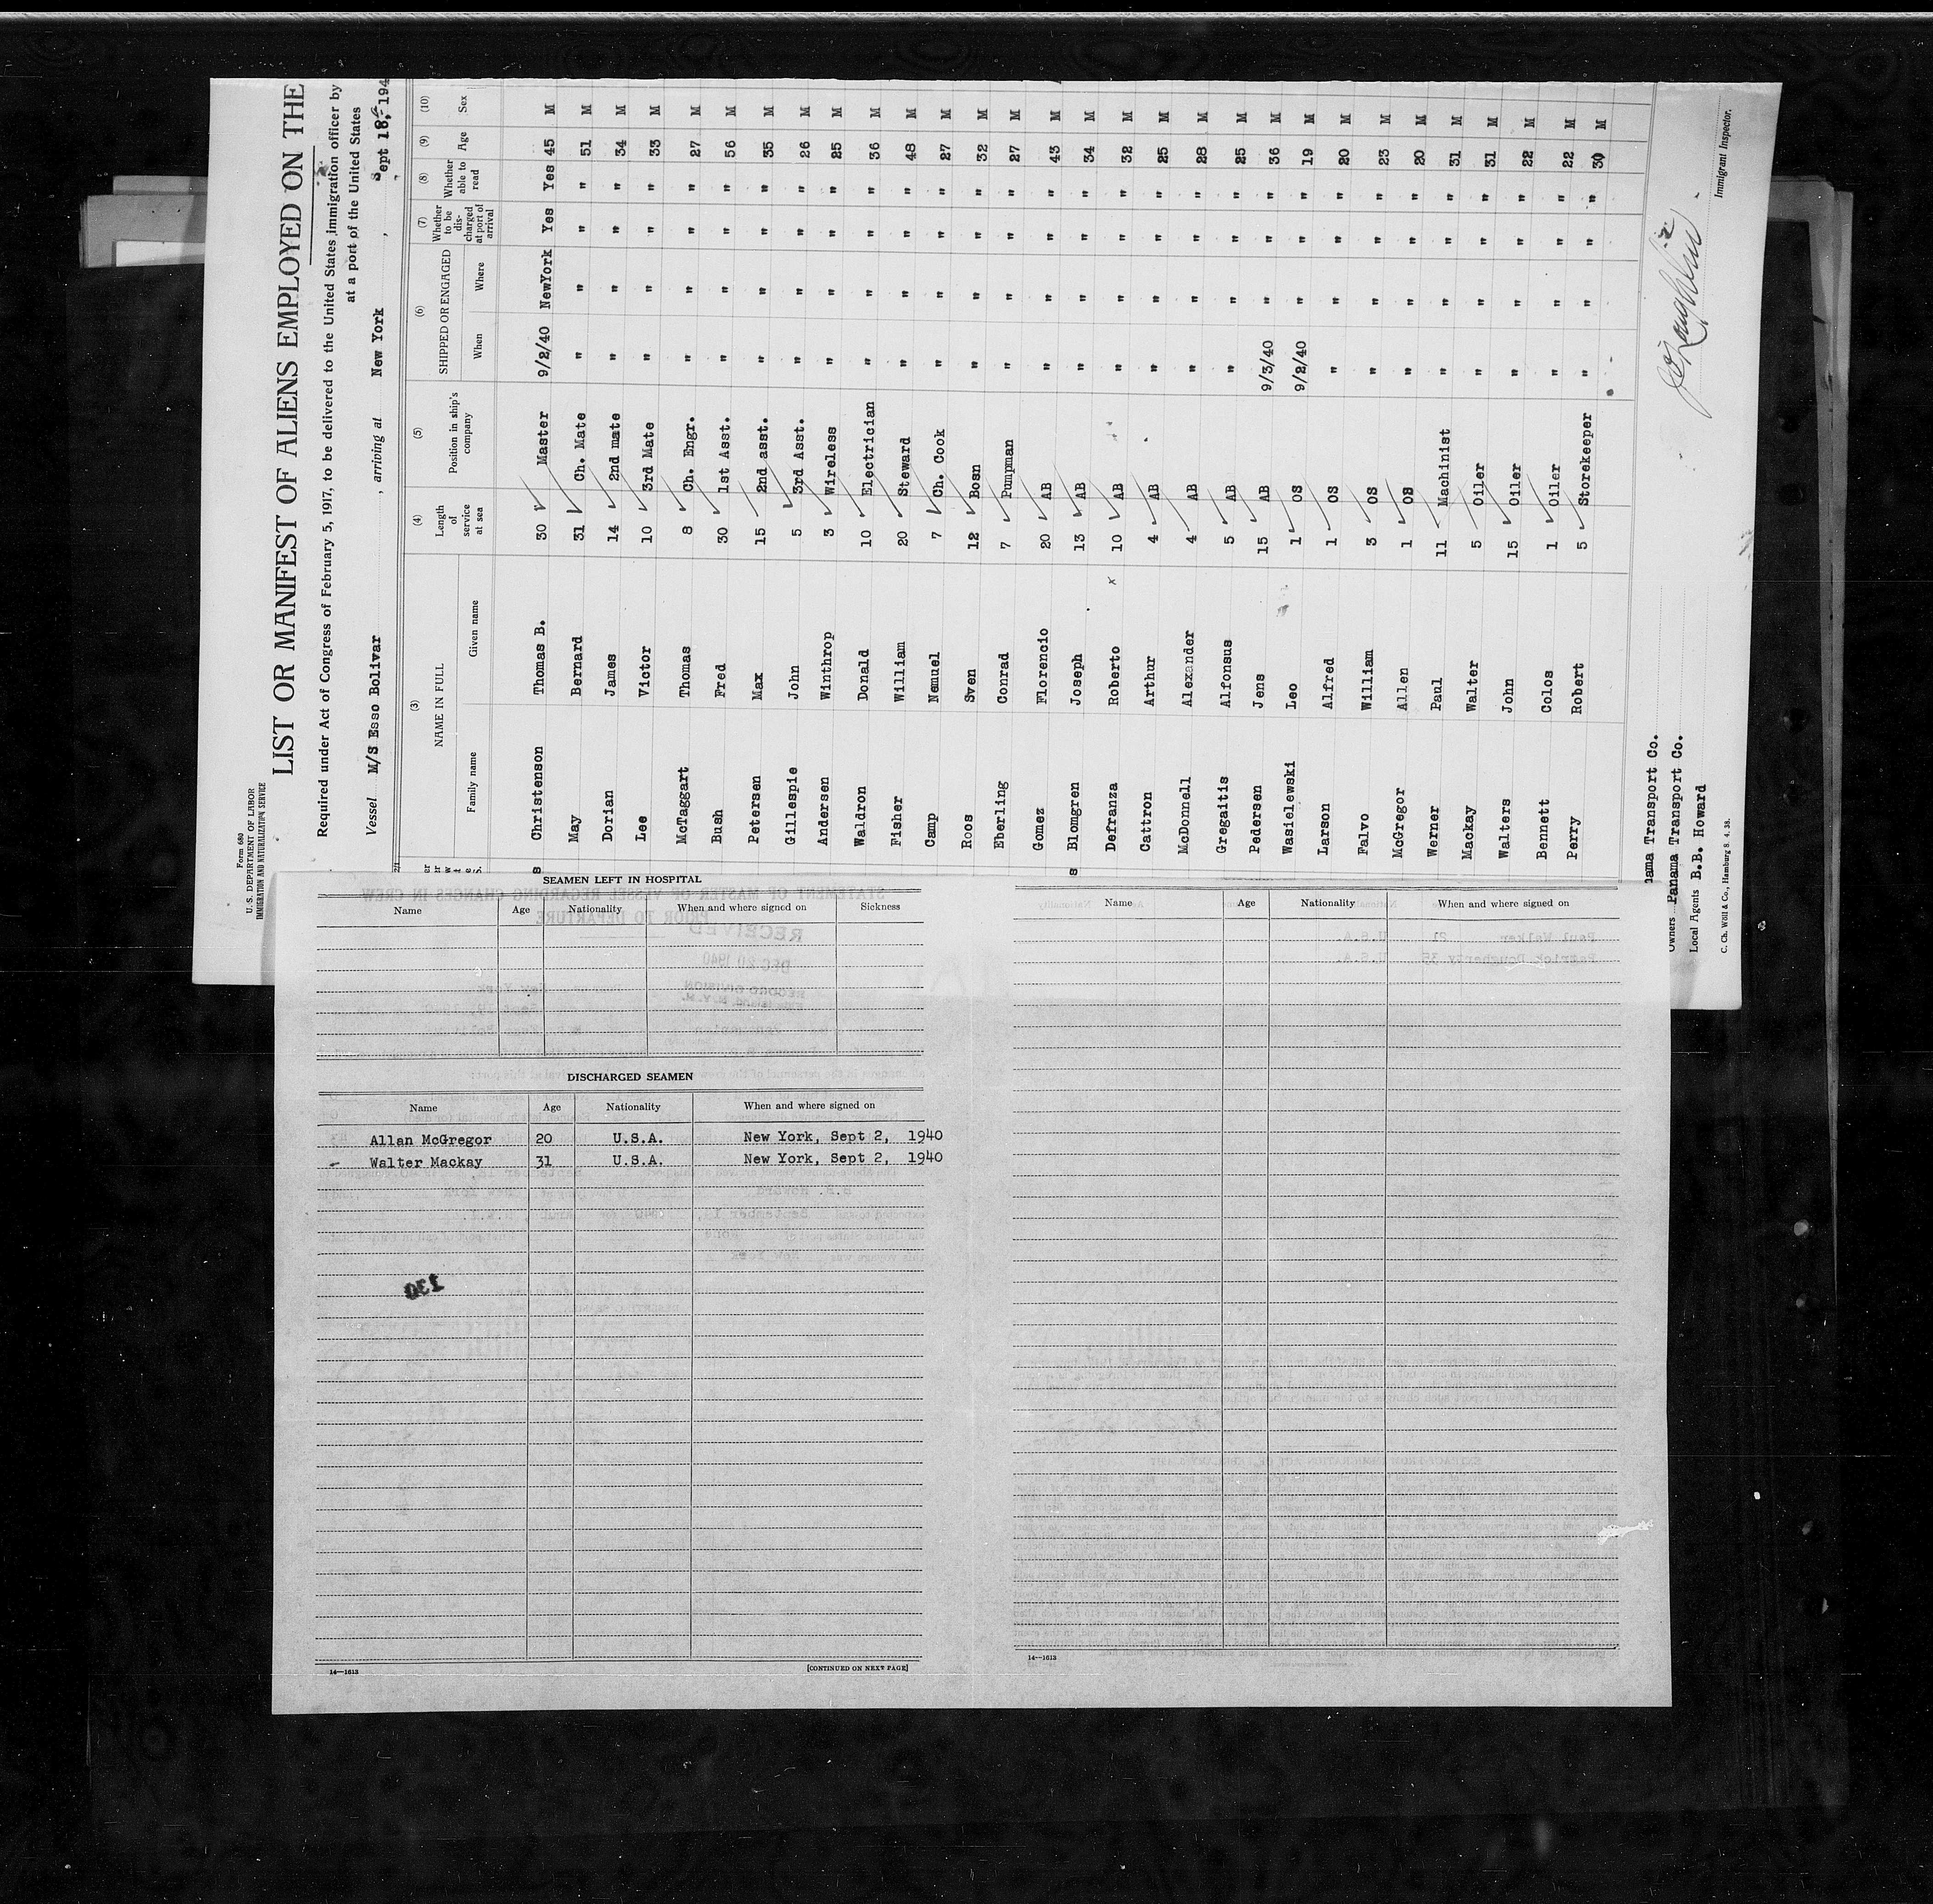 Form 680
U. S. DEPARTMENT OF LABOR
IMMIGRATION AND NATURALIZATION SERVICE
LIST OR MANIFEST OF ALIENS EMPLOYED ON THE
Required under Act of Congress of February 5, 1917, to be delivered to the United States immigration officer by
at a port of the United States
Vessel M/S Esso Bolivar , arriving at New York , Sept 18, 194
(3) (4) (5) (6) (7) (8) (9) (10)
NAME IN FULL Length of service at sea Position in ship's company SHIPPED OR ENGAGED Whether to be discharged at port of arrival Whether able to read Age Sex
Family name Given name When Where
Christenson Thomas B. 30 Master 9/2/40 NewYork Yes Yes 45 M
May Bernard 31 Ch. Mate " " " " 51 M
Dorian James 14 2nd mate " " " " 34 M
Lee Victor 10 3rd Mate " " " " 33 M
McTaggart Thomas 8 Ch. Engr. " " " " 27 M
Bush Fred 30 1st Asst. " " " " 56 M
Petersen Max 15 2nd asst. " " " " 35 M
Gillespie John 5 3rd Asst. " " " " 26 M
Andersen Winthrop 3 Wireless " " " " 25 M
Waldron Donald 10 Electrician " " " " 36 M
Fisher William 20 Steward " " " " 48 M
Camp Nemuel 7 Ch. Cook " " " " 27 M
Roos Sven 12 Bosn " " " " 32 M
Eberling Conrad 7 Pumpman " " " " 27 M
Gomez Florencio 20 AB " " " " 43 M
Blomgren Joseph 13 AB " " " " 34 M
Defranza Roberto 10 AB " " " " 32 M
Cattron Arthur 4 AB " " " " 25 M
McDonnell Alexander 4 AB " " " " 28 M
Gregaitis Alfonsus 5 AB " " " " 25 M
Pedersen Jens 15 AB 9/3/40 " " " 36 M
Wasielewski Leo 1 OS 9/2/40 " " " 19 M
Larson Alfred 1 OS " " " " 20 M
Falvo William 3 OS " " " " 23 M
McGregor Allen 1 OS " " " " 20 M
Werner Paul 11 Machinist " " " " 31 M
Mackay Walter 5 Oiler " " " " 31 M
Walters John 15 Oiler " " " " 22 M
Bennett Colos 1 Oiler " " " " 22 M
Perry Robert 5 Storekeeper " " " " 30 M
nama Transport Co.
Owners Panama Transport Co.
Local Agents B.B. Howard
Immigrant Inspector.
C. Ch. Wöll & Co., Hamburg 8. 4. 38.
SEAMEN LEFT IN HOSPITAL
Name Age Nationality When and where signed on Sickness
DISCHARGED SEAMEN
Name Age Nationality When and where signed on
Allan McGregor 20 U.S.A. New York, Sept 2, 1940
Walter Mackay 31 U.S.A. New York, Sept 2, 1940
130
14—1613 [CONTINUED ON NEXT PAGE]
Name Age Nationality When and where signed on
14—1613